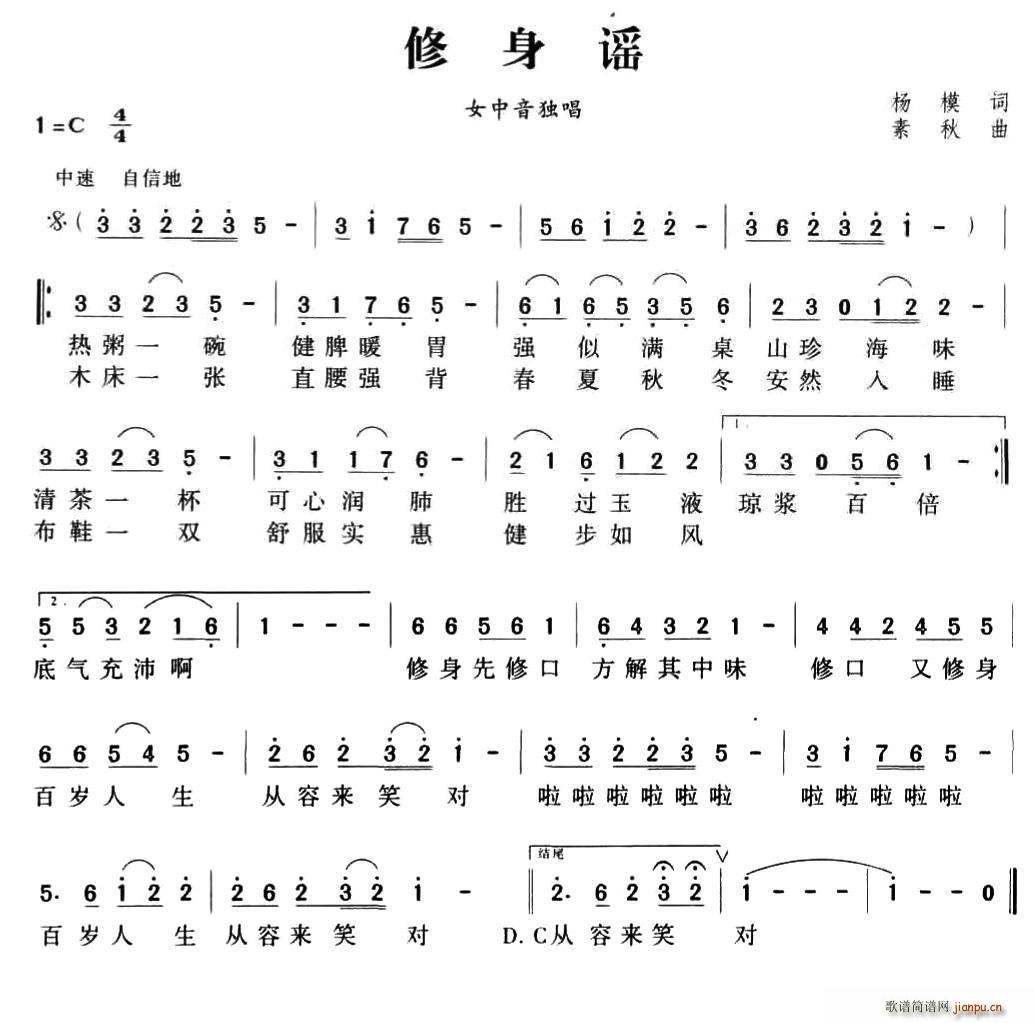 修身谣
女中音独唱
杨模词
1=C 4/4
素秋曲
中速 自信地
( 3 3 2 2 3 5 - | 3 1 7 6 5 - | 5 6 1 2 2 - | 3 6 2 3 2 1 - ) |
3 3 2 3 5 - | 3 1 7 6 5 - | 6 1 6 5 3 5 6 | 2 3 0 1 2 2 - |
热粥一碗 健脾暖胃 强似满桌山珍海味
木床一张 直腰强背 春夏秋冬安然入睡
1.
3 3 2 3 5 - | 3 1 1 7 6 - | 2 1 6 1 2 2 | 3 3 0 5 6 1 - :|
清茶一杯 可心润肺 胜过玉液琼浆百倍
布鞋一双 舒服实惠 健步如风
2.
5 5 3 2 1 6 | 1 - - - | 6 6 5 6 1 | 6 4 3 2 1 - | 4 4 2 4 5 5 |
底气充沛啊 修身先修口 方解其中味 修口又修身
6 6 5 4 5 - | 2 6 2 3 2 1 - | 3 3 2 2 3 5 - | 3 1 7 6 5 - |
百岁人生 从容来笑对 啦啦啦啦啦啦 啦啦啦啦啦
结尾
5. 6 1 2 2 | 2 6 2 3 2 1 - | 2. 6 2 3 2 | 1 - - - | 1 - - 0 |
百岁人生从容来笑对 D.C从容来笑对
歌谱简谱网 jianpu.cn